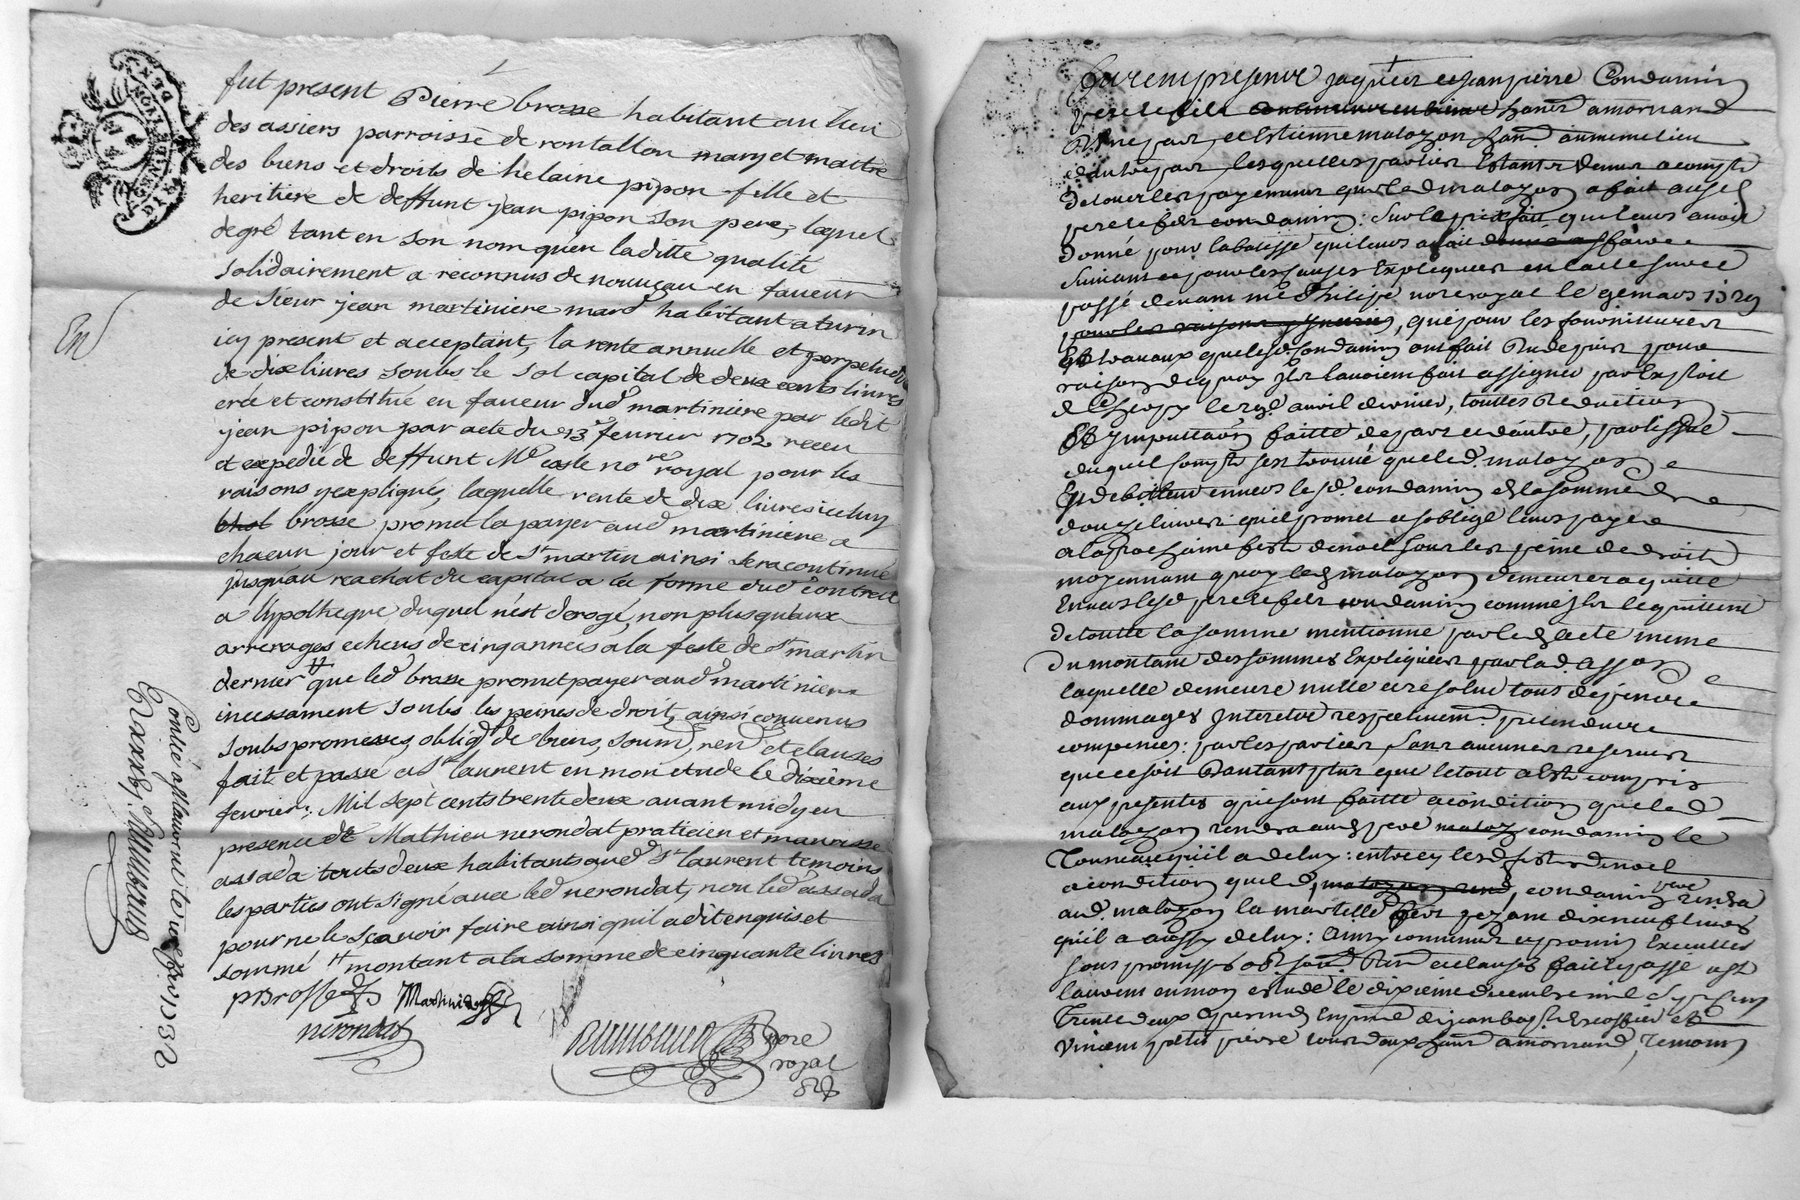 DE LYON
GENER
DIX D
fut present Pierre brosse habitant au lieu
des assiers parroisse de rontallon mary et maitre
des biens et droits de helaine pipon fille et
heritiere de deffunt jean pipon son pere, lequel
de gré tant en son nom qu'en laditte qualité
solidairement a reconnus de nouveau en faveur
de Sieur jean martiniere mard habitant a turin
icy present et acceptant, la rente annuelle et perpetuelle
de dix livres soubs le sol capital de deux cents livres
créé et constitué en faveur dud martiniere par ledit
jean pipon par acte du 13e fevrier 1702 receu
et expedié de deffunt Me caste nore royal pour les
raisons y expliqués, laquelle rente de dix livres icelluy
brosse promet la payer aud martiniere a
chacun jour et feste de st martin ainsi sera continué
jusqu'au reachat du capital a la forme dud contract
a l'hypotheque duquel n'est derogé, non plus qu'aux
arrerages echeus de cinq années a la feste de st martin
dernier # que led brosse promet payer aud martiniere
incessament soubs les peines de droit, ainsi convenus
soubs promesses, obligd de biens, soumd, rend et clauses
fait et passé a St laurent en mon etude le dixième
fevrier, Mil sept cents trente deux avant midy en
presence de Mathieu nerondat praticien et maurisse
assada touts deux habitants aud St laurent temoins
les parties ont signé avec led nerondat, non led assada
pour ne le scavoir faire ainsi qu'il a dit enquis et
sommé # montant a la somme de cinquante livres
PBrosse Martiniere
nerondat
nore
royal
En
Conlé a st laurent le 10 fevr 1732
Furent presents jaques et jean pierre Condamin
pere et fils habts a mornand
d'une part, et Estienne matozon habt au meme lieu
d'autre part, lesquelles parties Estants venus a compte
de tous les payements que led matozon a fait ausd
pere et fils condamin: sur le prixfait qu'il leurs avoit
donné pour la batisse qu'il leurs a fait faire
suivant et pour les causes Expliquées en l'acte sur ce
passé devant me Philipe nore royal le 9e mars 1729
que pour les fournitures
Et travaux que lesd Condamin ont fait
raison de quoy ils l'avoient fait assigner par Exploit
avril dernier, touttes deductions
Et imputations faitte de part et d'autre,
duquel compte s'est trouvé que led matozon
debiteur envers lesd condamin de la somme de
douze livres qu'il promet et s'oblige leurs payer
a la prochaine feste de noel sous les peine de droit
moyennant quoy led matozon demeurera quitte
Envers lesd pere et fils condamin comme ils le quittent
de toutte la somme mentionné par led acte meme
du montant des sommes Expliquées par lad
laquelle demeure nulle et resolue tous depends
dommages Interests respectivemt pretendus
compensés: par les parties sans aucunes reserves
que ce soit d'autant plus que le tout a Esté compris
aux presentes qui sont faitte a condition que led
matozon rendra aud pere condamin le
qu'il a de luy: entre cy et lesd festes de noel
a condition que led, condamin pere rendra
aud matozon la dix neuf livres
qu'il a aussy de luy: Ainsy convenus et promis Executter
sous promisses obt soumt et clauses fait et passé a st
laurent en mon etude le dixieme decembre mil sept cents
Trente deux
vincent petit pierre tous deux habts a mornand, temoins